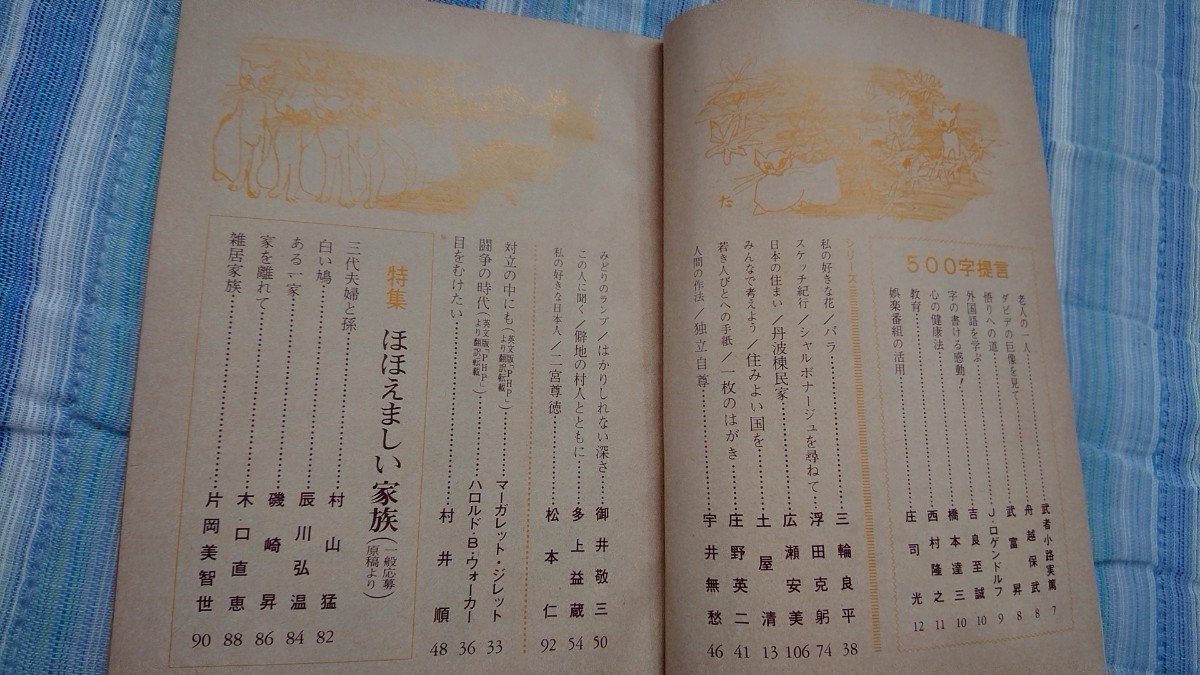 500字提言
老人の一人 武者小路実篤 7
ダビデの巨像を見て 舟越保武 8
悟りへの道 武富昇 8
外国語を学ぶ J・ロゲンドルフ 9
字の書ける感動! 吉良至誠 10
心の健康法 橋本達三 10
教育 西村隆之 11
娯楽番組の活用 庄司光 12
シリーズ
私の好きな花/バラ 三輪良平 38
スケッチ紀行/シャルボナージュを尋ねて 浮田克躬 74
日本の住まい/丹波棟民家 広瀬安美 106
みんなで考えよう/住みよい国を 土屋清 13
若き人びとへの手紙/一枚のはがき 庄野英二 41
人間の作法/独立自尊 宇井無愁 46
た
みどりのランプ/はかりしれない深さ 御井敬三 50
この人に聞く/僻地の村人とともに 多上益蔵 54
私の好きな日本人/二宮尊徳 松本仁 92
対立の中にも(英文版「PHP」より翻訳転載) マーガレット・ジレット 33
闘争の時代(英文版「PHP」より翻訳転載) ハロルド・B・ウォーカー 36
目をむけたい 村井順 48
特集 ほほえましい家族(一般応募原稿より)
三代夫婦と孫 村山猛 82
白い鳩 辰川弘温 84
ある一家 磯崎昇 86
家を離れて 木口直恵 88
雑居家族 片岡美智世 90